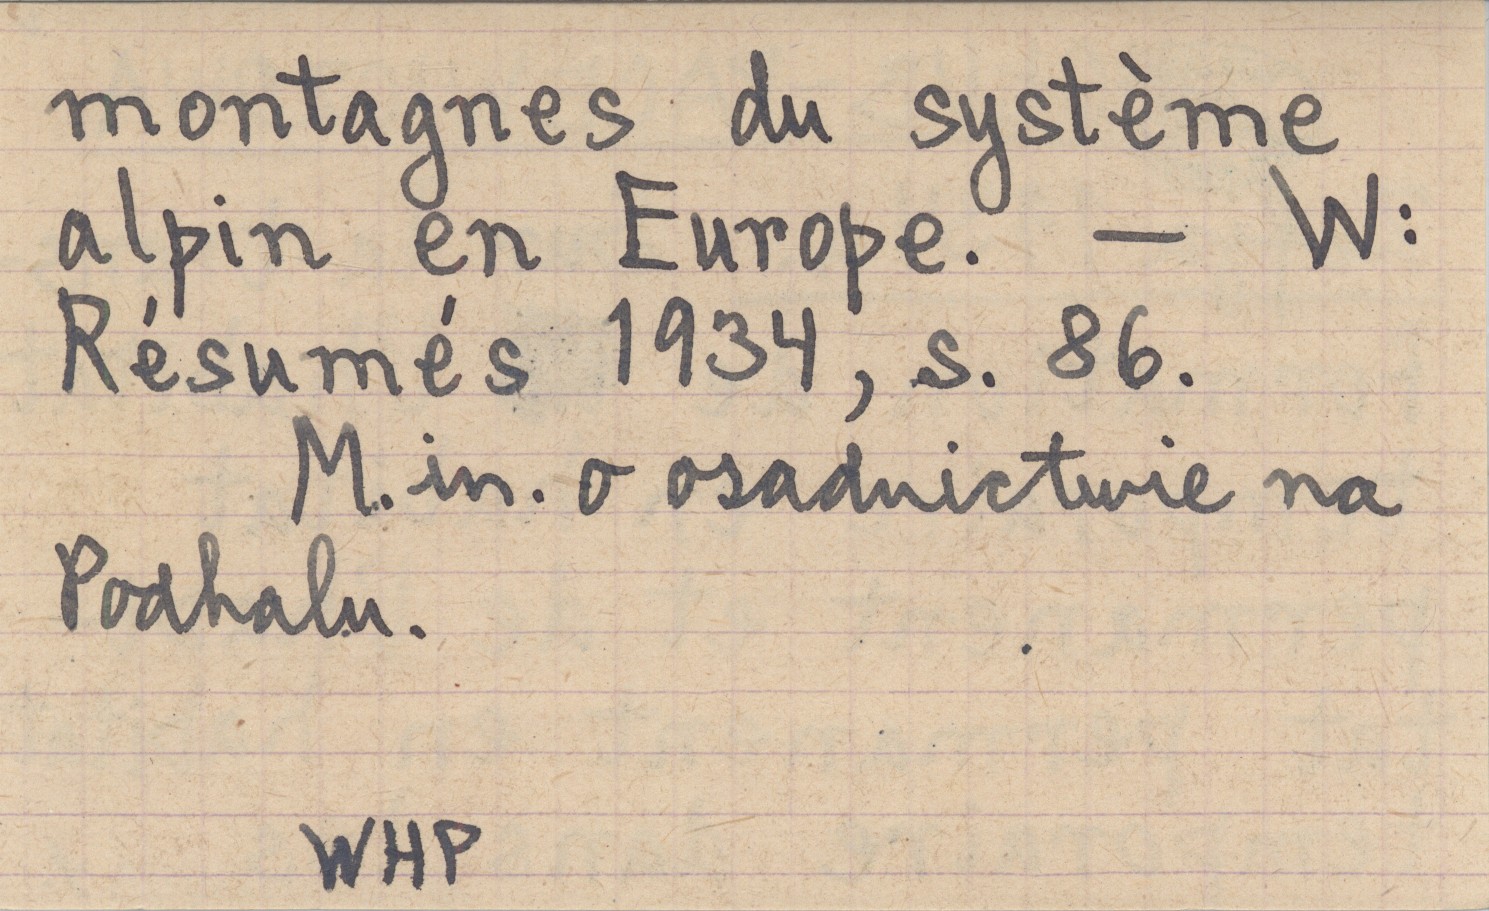 montagnes du système
alpin en Europe. — W:
Résumés 1934, s. 86.
M. in. o osadnictwie na
Podhalu.
WHP